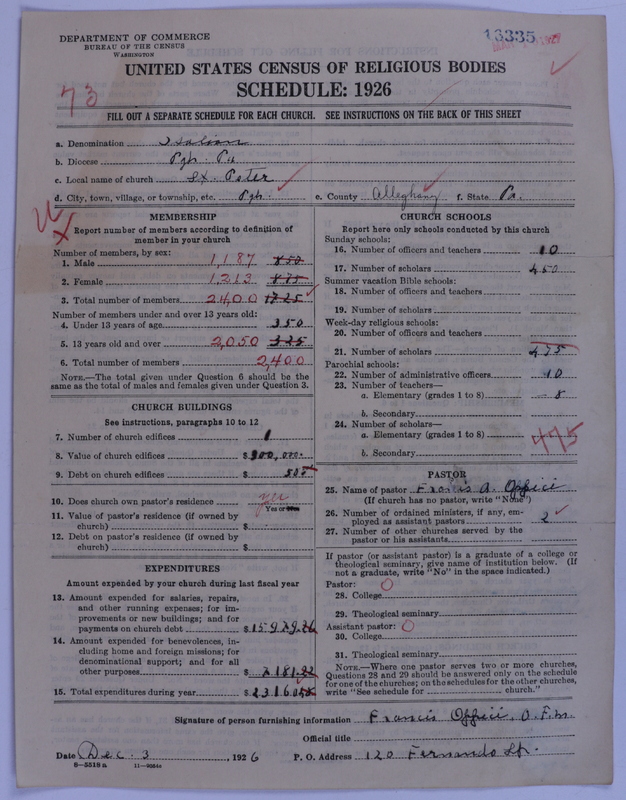 DEPARTMENT OF COMMERCE
BUREAU OF THE CENSUS
WASHINGTON
13335
UNITED STATES CENSUS OF RELIGIOUS BODIES
SCHEDULE: 1926
73
FILL OUT A SEPARATE SCHEDULE FOR EACH CHURCH. SEE INSTRUCTIONS ON THE BACK OF THIS SHEET
a. Denomination Italian
b. Diocese Pgh. Pa
c. Local name of church St. Peter
d. City, town, village, or township, etc. Pgh. e. County Allegheny f. State Pa.
MEMBERSHIP
Report number of members according to definition of
member in your church
Number of members, by sex:
1. Male 1,187 850
2. Female 1,213 875
3. Total number of members 2400 1725
Number of members under and over 13 years old:
4. Under 13 years of age 350
5. 13 years old and over 2,050 325
6. Total number of members 2,400
NOTE.—The total given under Question 6 should be the
same as the total of males and females given under Question 3.
CHURCH BUILDINGS
See instructions, paragraphs 10 to 12
7. Number of church edifices 1
8. Value of church edifices $300,000.
9. Debt on church edifices $
10. Does church own pastor's residence yes
Yes or No
11. Value of pastor's residence (if owned by
church) $
12. Debt on pastor's residence (if owned by
church) $
EXPENDITURES
Amount expended by your church during last fiscal year
13. Amount expended for salaries, repairs,
and other running expenses; for im-
provements or new buildings; and for
payments on church debt $15979.26
14. Amount expended for benevolences, in-
cluding home and foreign missions; for
denominational support; and for all
other purposes $ 7181.22
15. Total expenditures during year $
CHURCH SCHOOLS
Report here only schools conducted by this church
Sunday schools:
16. Number of officers and teachers 10
17. Number of scholars 450
Summer vacation Bible schools:
18. Number of officers and teachers
19. Number of scholars
Week-day religious schools:
20. Number of officers and teachers
21. Number of scholars 475
Parochial schools:
22. Number of administrative officers 10
23. Number of teachers—
a. Elementary (grades 1 to 8) 8
b. Secondary
24. Number of scholars—
a. Elementary (grades 1 to 8) 475
b. Secondary
PASTOR
25. Name of pastor Francis A. Office
(If church has no pastor, write "None")
26. Number of ordained ministers, if any, em-
ployed as assistant pastors 2
27. Number of other churches served by the
pastor or his assistants
If pastor (or assistant pastor) is a graduate of a college or
theological seminary, give name of institution below. (If
not a graduate, write "No" in the space indicated.)
Pastor:
28. College
29. Theological seminary
Assistant pastor:
30. College
31. Theological seminary
NOTE.—Where one pastor serves two or more churches,
Questions 28 and 29 should be answered only on the schedule
for one of the churches; on the schedules for the other churches,
write "See schedule for church."
Signature of person furnishing information Francis O.F.M.
Official title
Date Dec. 3, 1926 P. O. Address 120 Fernando St.
8—5518 a